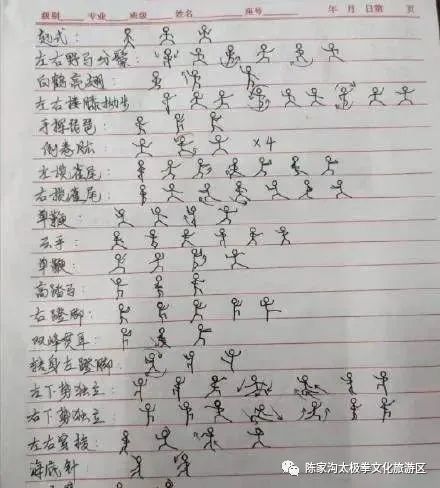 级别 专业 班级 姓名 座号 年 月 日第 页
起式：
左右野马分鬃：
白鹤亮翅：
左右搂膝拗步
手挥琵琶：
倒卷肱： ×4
左揽雀尾：
右揽雀尾：
单鞭：
云手：
单鞭：
高踏马：
右蹬脚：
双峰贯耳：
转身左蹬脚：
左下势独立：
右下势独立：
左右穿梭：
海底针：
陈家沟太极拳文化旅游区